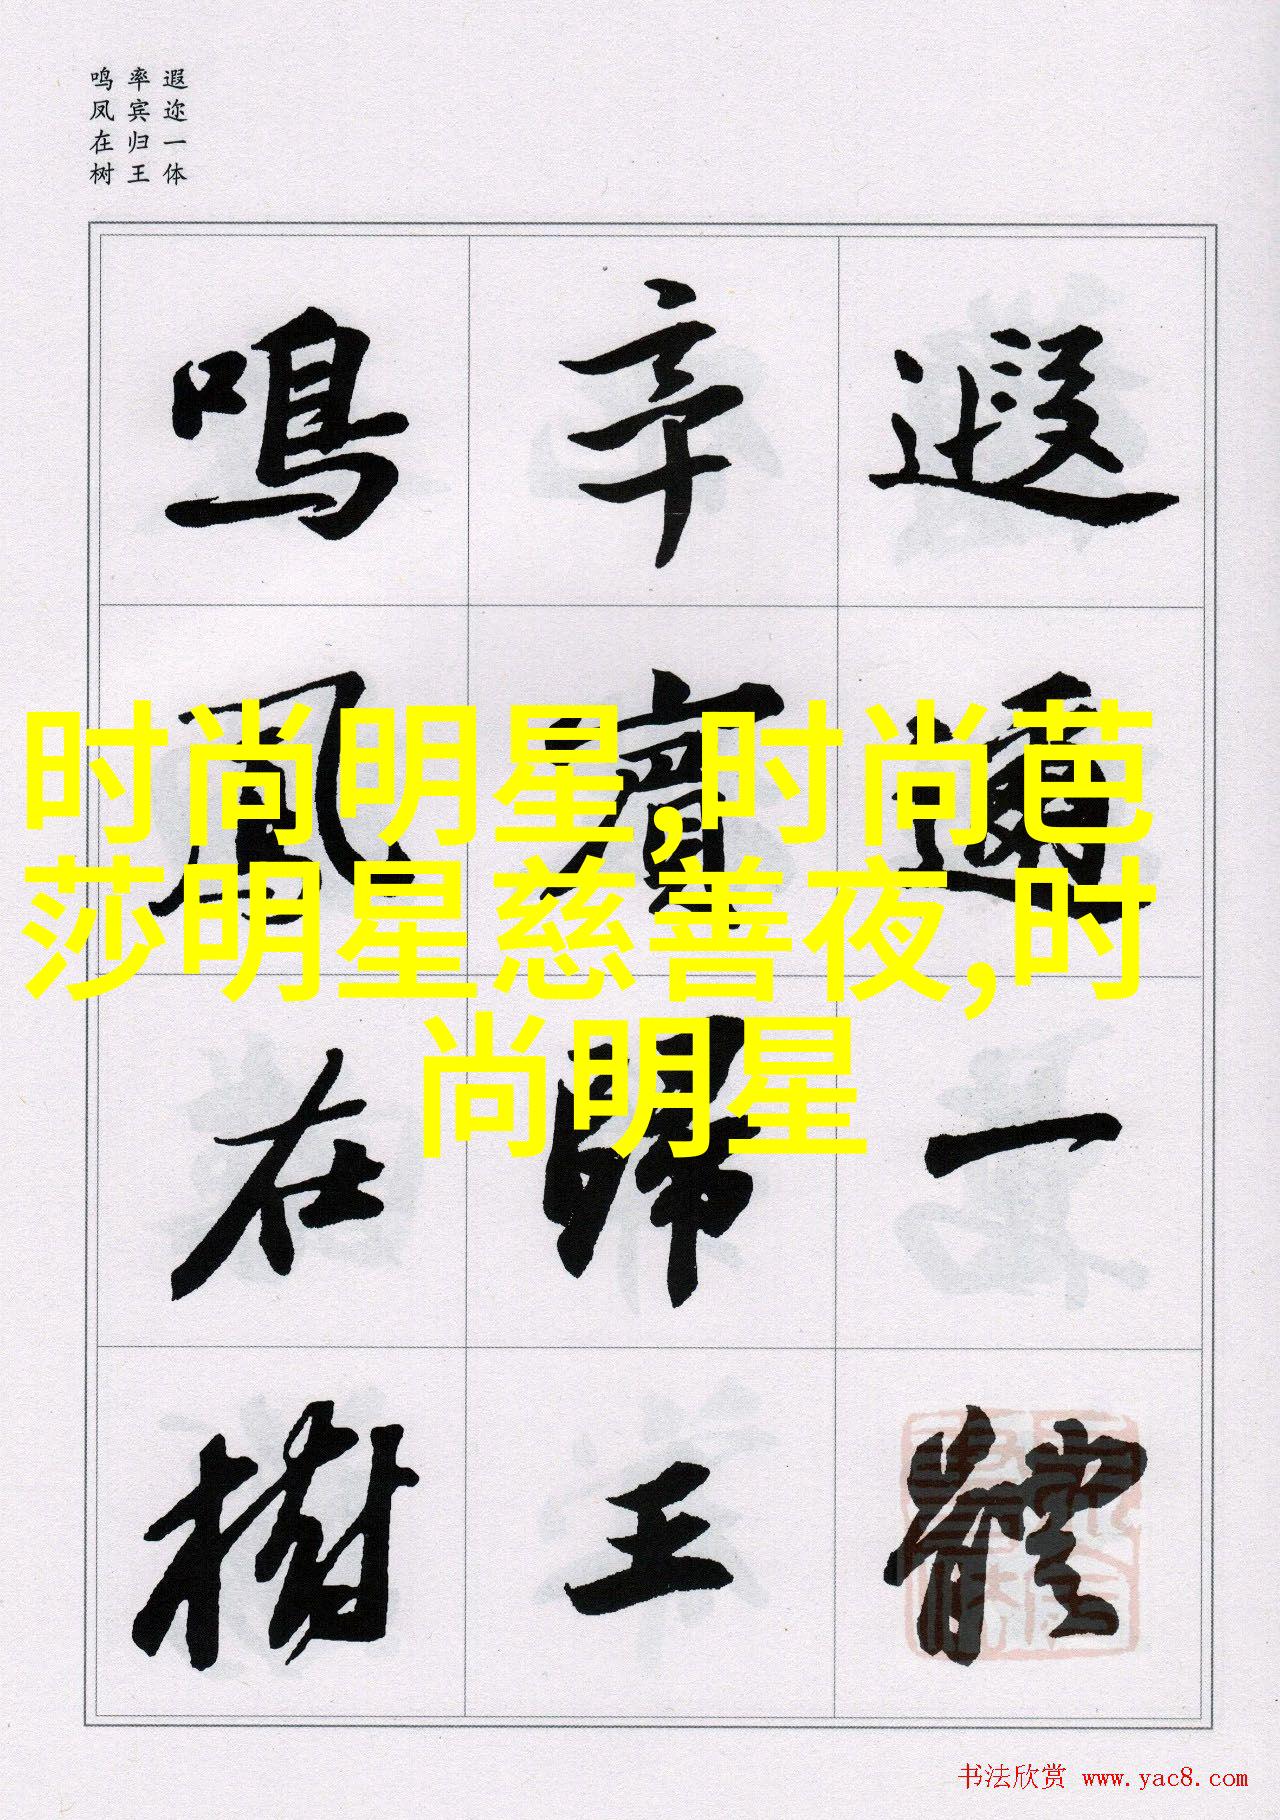 遐迩一体
率宾归王
鸣凤在树
遐邇一體
率賓歸王
鳴鳳在樹
时尚明星,时尚芭
莎明星慈善夜,时
尚明星
书法欣赏 www.yac8.com